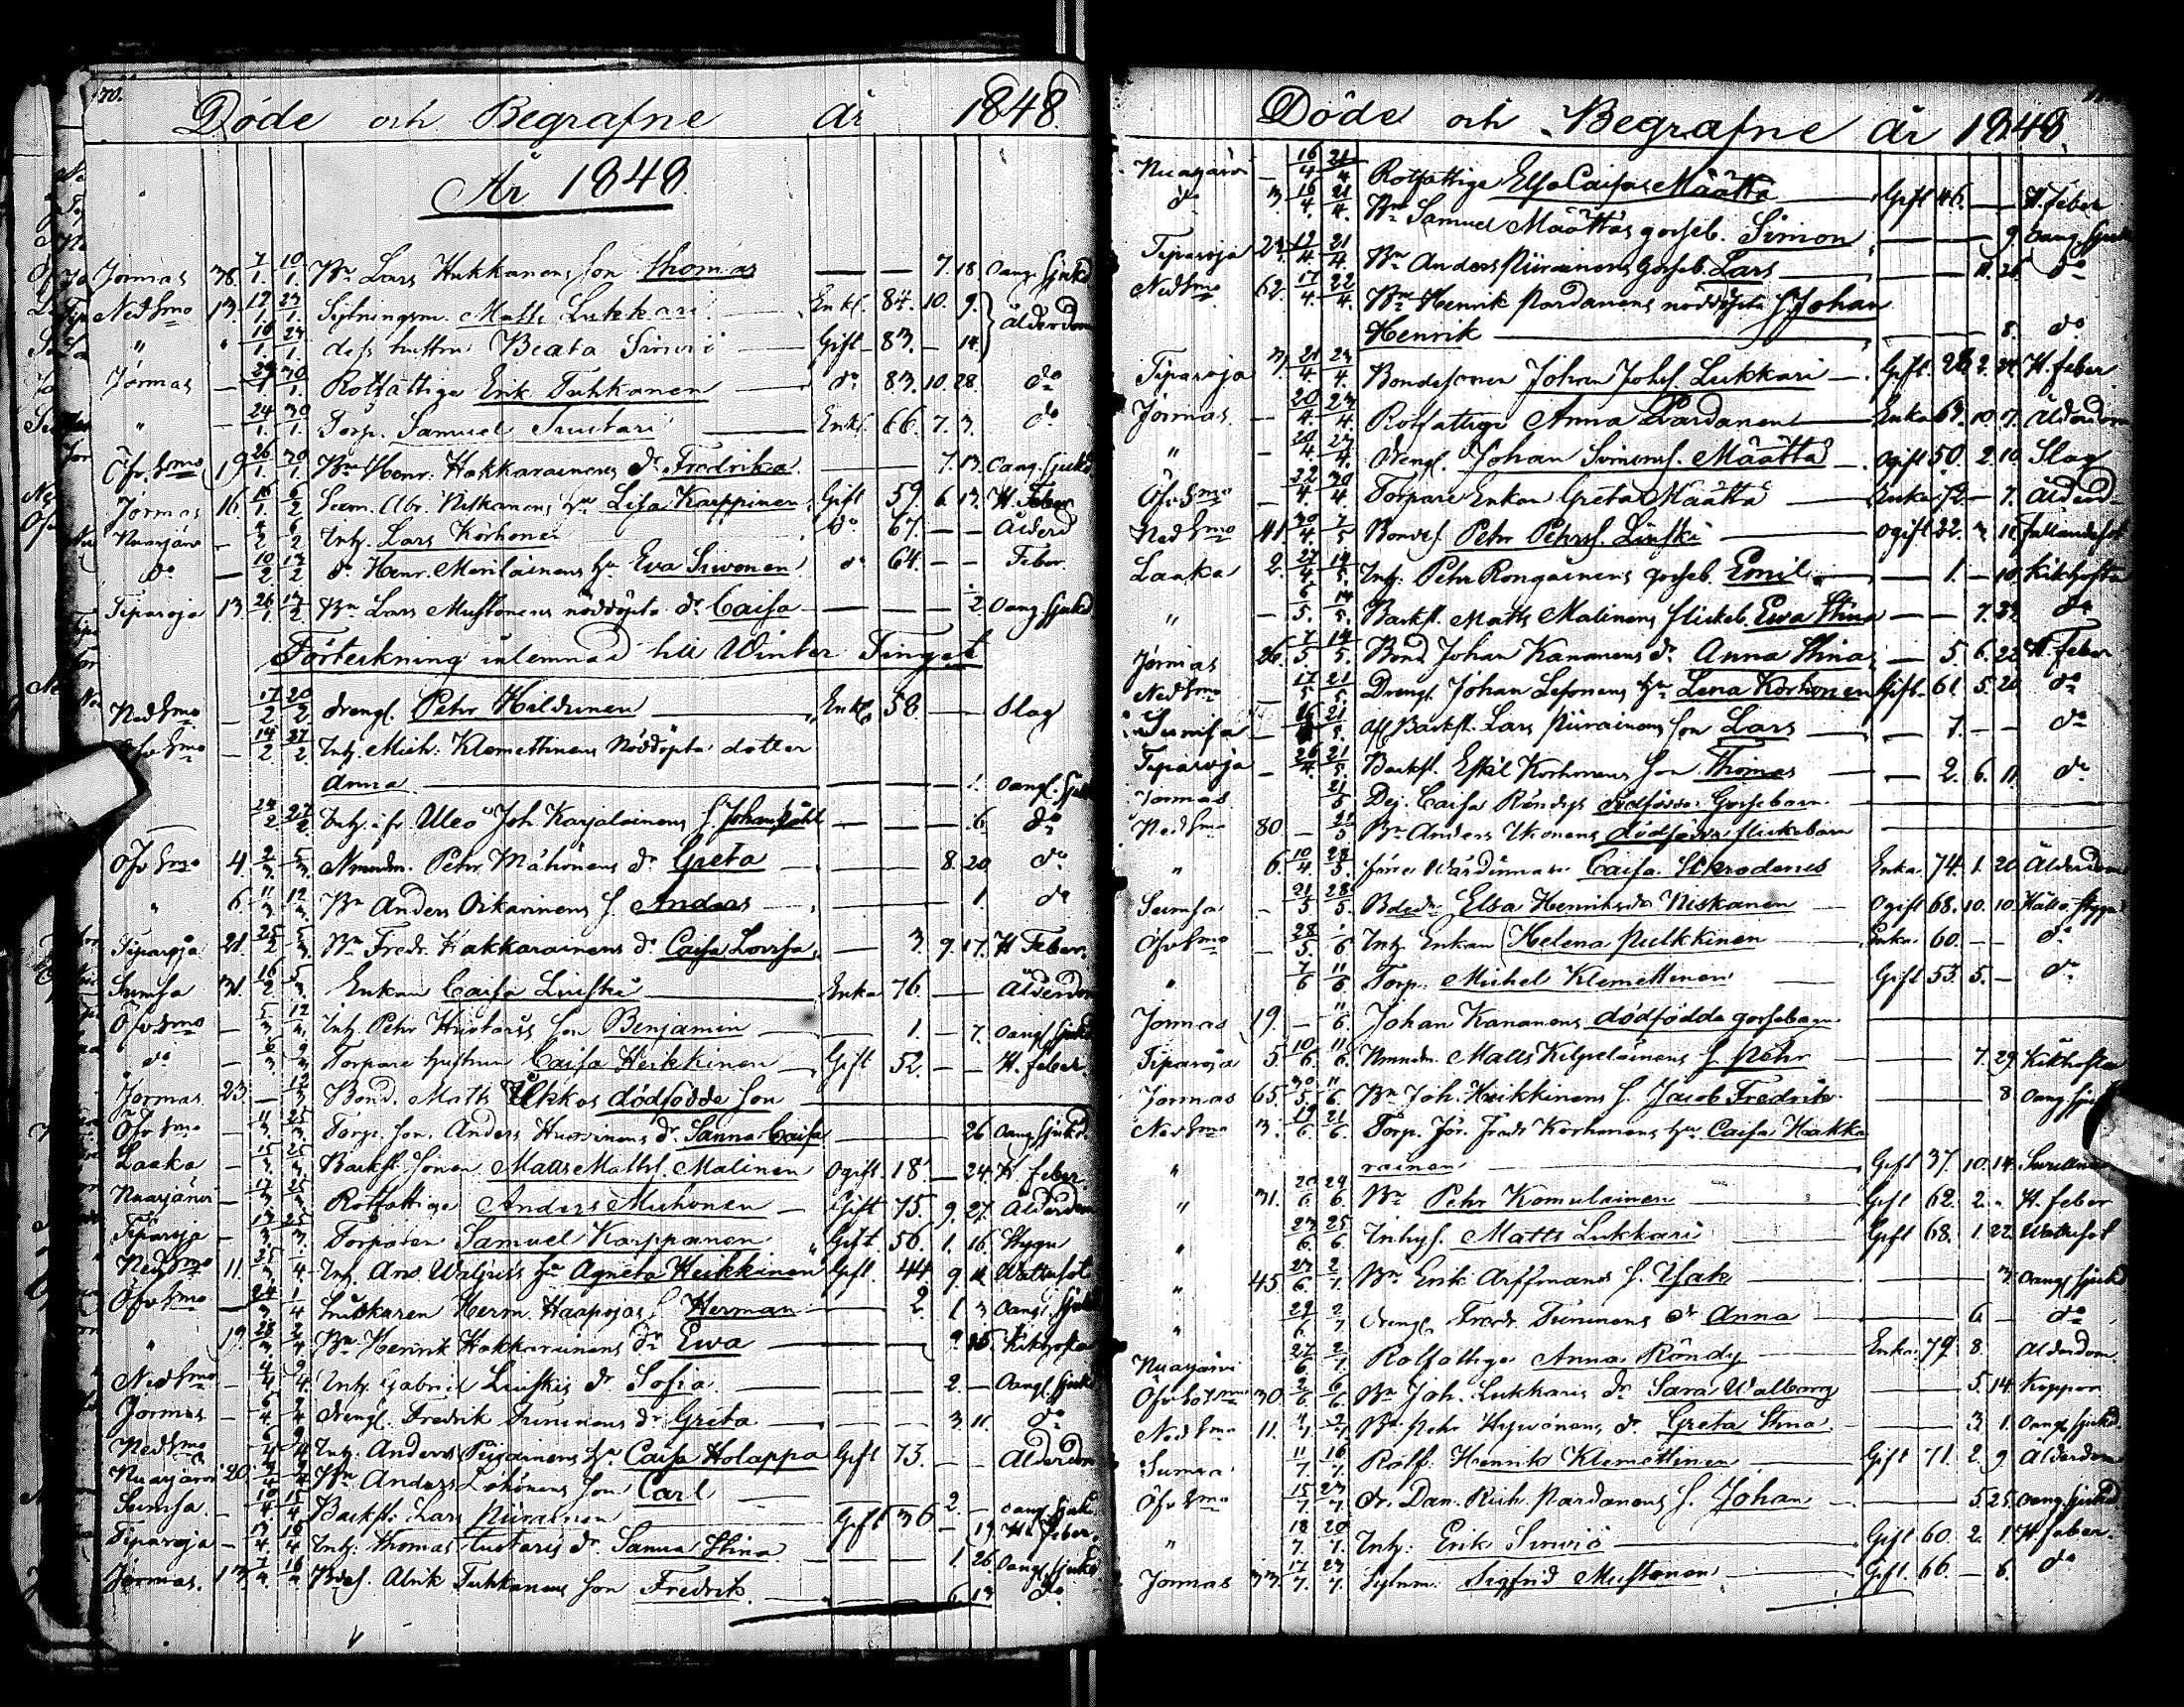 170.
Döde och Begrafne år 1848.
År 1848
Jormas 38. 7/1. 10/1. Bn Lars Hukkanens son Thomas — — 7. 18 Oang. sjukd
Ned Smo 13. 12/1. 23/1. Sytningsm. Matts Lukkari Enkl. 84. 10. 9. Ålderdom
" " 18/1. 23/1. dess hustru Beata Sirviö Gift 83. — 14.
Jormas — 30/1. Rotfattige Erik Tuhkanen do 83. 10. 28. do
" — 24/1. 30/1. Torp. Samuel Enkl. 66. 7. 3. do
Öfv. Smo 19 26/1. 30/1. Bn Henr. Hakkarainens dr Fredrika — 7. 13. Oang. sjukd
Jormas 16. Abr. Niskanens hu Lisa Karppinen Gift 59. 6. 13. H. Feber
Nuasjärvi — 6/2 Inh. Lars Korhonen do 67. — — Ålderd
do — 10/2 13/2 do Henr. Meriläinens hu Eva Sirvonen do 64. — — Feber
Tiparoja 13. 26/1 Bn Lars Mustonens nöddöpta dr Caisa — — — 1/2 Oang. sjukd
Förteckning inlemnad till Winter Tinget
Ned Smo — 17/2 20/2. Drengl. Petr Hildunen Enkl. 58. — — Slag
Öfv Smo — 14/2 27/2. Inh. Mich: Klemettinens Nöddöpta dotter
Anna — — — 1. Oangl. sjukd
24/2 27/2. Inh. ifr. Uleo Joh. Karjalainens s. Johan — — — 6. do
Öfv Smo 4. 2/3. 5/3. Nmndm. Petr Mähönens dr Greta — — 8. 20 do
" 6. 11/3. 12/3. Bn Anders Oikarinens s. Anders — — — 1. do
Tiparoja 21. 25/2 5/3. Bn Fredr. Hakkarainens dr Caisa Lovisa — 3. 9. 17. H Feber.
Sumsa 31. 16/2 5/3. Enkan Caisa Linski Enka 76. — — Ålderdom
Öfv Smo — 5/3. 12/3. Inh. Petr Hustaris son Benjamin — 1. — 7. Oangl. sjukd
do — Torpare hustrun Caisa Heikkinen Gift 52. — — H. feber
Jormas 23. — 12/3 Bond. Matts Ukkos dödfödde son
Öfv Smo — 11/3. 25/3. Torp. son. Anders dr Sanna Caisa — — — 26 Oang sjukd
Laaka — 15/3. 25/3. Backst. sonen Matts Mattss. Malinen Ogift 18. — 24. H feber.
Nuasjärvi — 17/3. 25/3. Rotfattige Anders Muhonen Gift 75. 9. 27. Ålderdom
Tiparoja — 25/3. Torparen Samuel Karppanen Gift. 56. 1. 16. Stygn
Ned Smo 11. 25/3. 1/4. Inh. And. hu Agneta Heikkinen Gft. 44. 9. Wattusot
Öfv Smo — 24/3 1/4 Herm. Haapojas s. Herman — 2. 1 3 Oangl. sjukd
" 19. 28/3 2/4 Bn Henrik Hakkarainens dr Ewa — — Kikhosta
Ned Smo — 4/4 9/4. Inh. Gabriel Linskis dr Sofia — — 2. — Oangl. sjukd
Jormas — 6/4. 9/4. Drengl. Fredrik dr Greta — — 3. 11. do
Ned Smo — 6/4 9/4. Inh. Anders hu Caisa Holappa Gift 73. — — Ålderdom
Nuasjärvi 20. Bn Anders son Carl — — 2. — oang. sjukd.
Sumsa — Backst. Lars Piirainen Gift 36 — 19 H. feber.
Tiparoja — 16/4 Inh. Thomas dr Sanna Stina — — 1. 26. Oangl. sjukd
Jormas. 13. 16/4 Bdes. Alrik Tuhkanens son Fredrik — — 6. 13 do
Döde och Begrafne år 1848.
Nuasjärvi — 16/4 21/4 Rotfattige Elsa Caisa Määttä Gift 46. — — H. feber
do 3. 16/4. 21/4. Bn Samuel Määttäs gosseb. Simon — — — 9 Oang. sjukd
Tiparoja 19/4. 21/4. Bn Anders Piirainens Gosseb. Lars — — do
Ned Smo 62. 17/4. 22/4. Bn Henrik Pardanens nöddöpta s. Johan
Henrik — — — 8. do
Tiparoja 3. 21/4. 23/4. Bondesonen Johan Johss. Lukkari Gift. 28 2. 24. H. feber
Jormas — 20/4. 23/4. Rotfattige Anna Pardanen Enka 63. 10. 7. Ålderdom
" — Drengl. Johan Simonss. Määttä ogift 50. 2. 10. Slag
Öfv Smo — 22/4. 30/4. Torpare Enkan Greta Määttä Enka 72. — 7. Ålderd
Ned Smo 41. Bondes. Petr Petrss. Linski ogift 22. fallandesot
Laaka 2. 27/4. 14/5. Inh: Petr Rongainens gosseb. Emil — 1. — 10. Kikhosta
" — 6/5. 14/5. Backst. Matts Malinens flickeb. Ewa Stina — — 7. do
Jormas 26. 7/5. 14/5. Bond Johan Kananens dr Anna Stina — 5. 6. 22 H. feber
Ned Smo — 17/5 21/5. Drengl. Johan Lesonens hu Lena Korhonen Gift. 61. 5. 20. do
Sumsa — 21/5. afl. Backst. Lars Piirainens son Lars — 7. — — do
Tiparoja — 26/4. 21/5. Backst. Eskil Korhonens son Thomas — 2. 6. 11. do
Jormas 21/5 Dej. Caisa Röndys dödfödda Gossebarn
Ned Smo 80 — 21/5 Bn Anders dödfödda flickebarn
" 6. 10/4. 28/5. förre Caisa Skroderus Enka. 74. 1. 20 Ålderdom
Sumsa — 21/5 28/5. Bdedr Elsa Henriksdr Niskanen Ogift 68. 10. 10. Håll o. stygn
Öfv Smo — 28/5. Inh Enkan Helena Pulkkinen Enka. 60. — — do
" 7/6 11/6 Torp. Michel Klemettinen Gift 55. 5. — do
Jormas 19. — 11/6. Johan Kananens dödfödda gossebarn
Tiparoja 5. 10/6. 11/6. Nmndm. Matts Kilpeläinens s. Petr — — 7. 29. Kikhosta
Jormas 65. 30/5. 11/6. Bn Joh. Heikkinens s. Jacob Fredrik — — 8 oang. sjukd
Ned Smo 3. 19/6. 21/6. Torp. Joh. Fredr Korhonens hu Caisa Hakka
" rainen Gift 37. 10. 14.
" 31. 20/6. 24/6. Bn Petr Komulainen Gift 62. 2. " H. feber
" 23/6. 25/6. Inhys. Matts Lukkari Gift 68. 1. 22. Wattusot
" 45 27/6 2/7. Bn Erik Arffmans s. Isak — — 3. Oangl. sjukd
" 29/6 2/7 Drengl. Fredr dr Anna — — 6. — do
Nuasjärvi 27/6 2/7. Rotfattige Anna Röndy Enka. 79. 8. Ålderdom.
Öfv Sotkmo 30. 2/6. 6/7. Bn Joh. Lukkaris dr Sara Walborg — — 5. 14 Koppor
Ned Smo 11. Bn Petr Hyvönens dr Greta Stina. — — 3. 1. oangl. sjukd.
Sumsa 11/7. 16/7. Rotf. Henrik Klemettinen Gift 71. 2. 9 Ålderdom
Öfv Smo 15/7. 23/7. dr. Dan. Rich. Pardanens s. Johan — — 5. 25. oang. sjukd.
" 18/7. 20/7. Inh. Erik Sirviö Gift 60. 2. 1. H feber.
Jormas 33. 17/7. 23/7. Sytnm. Sigfrid Mustonen Gift. 66. — 6. do